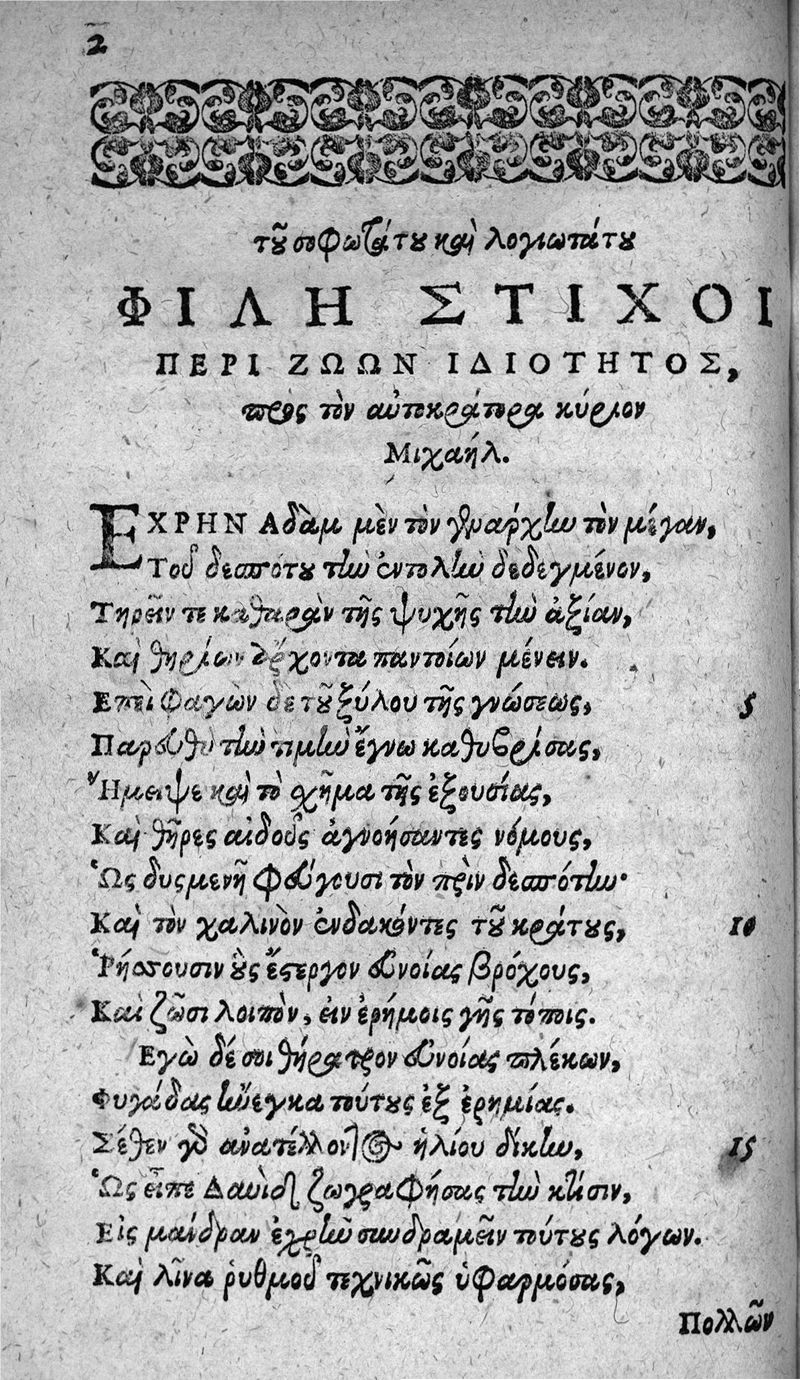 2
τοῦ σοφωτάτου καὶ λογιωτάτου
ΦΙΛΗ ΣΤΙΧΟΙ
ΠΕΡΙ ΖΩΩΝ ΙΔΙΟΤΗΤΟΣ,
πρὸς τὸν αὐτοκράτορα κύριον
Μιχαήλ.
ΕΧΡΗΝ Αδὰμ μὲν τὸν γενάρχην τὸν μέγαν,
Τοῦ δεσπότου τὴν ἐντολὴν δεδεγμένον,
Τηρεῖν τε καθαρὰν τῆς ψυχῆς τὴν ἀξίαν,
Καὶ θηρίων ἄρχοντα παντοίων μένειν.
Επεὶ φαγὼν δὲ τοῦ ξύλου τῆς γνώσεως, 5
Παρευθὺ τὴν τιμὴν ἔγνω καθυβρίσας,
Ἤμειψε καὶ τὸ σχῆμα τῆς ἐξουσίας,
Καὶ θῆρες αἰδοῦς ἀγνοήσαντες νόμους,
Ὡς δυσμενῆ φεύγουσι τὸν πρὶν δεσπότην·
Καὶ τὸν χαλινὸν ἐνδακόντες τοῦ κράτους, 10
Ῥήσσουσιν οὓς ἔστεργον εὐνοίας βρόχους,
Καὶ ζῶσι λοιπὸν, ἐν ἐρήμοις γῆς τόποις.
Εγὼ δέ σοι θήρατρον εὐνοίας πλέκων,
Φυγάδας ἤνεγκα τούτους ἐξ ἐρημίας.
Σέθεν γὸ ἀνατέλλοντος ἡλίου δίκην, 15
Ὡς εἶπε Δαυὶδ ζωγραφήσας τὴν κτίσιν,
Εἰς μάνδραν ἐχρῆν συνδραμεῖν τούτους λόγων.
Καὶ λῖνα ῥυθμοῦ τεχνικῶς ὑφαρμόσας,
Πολλῶν